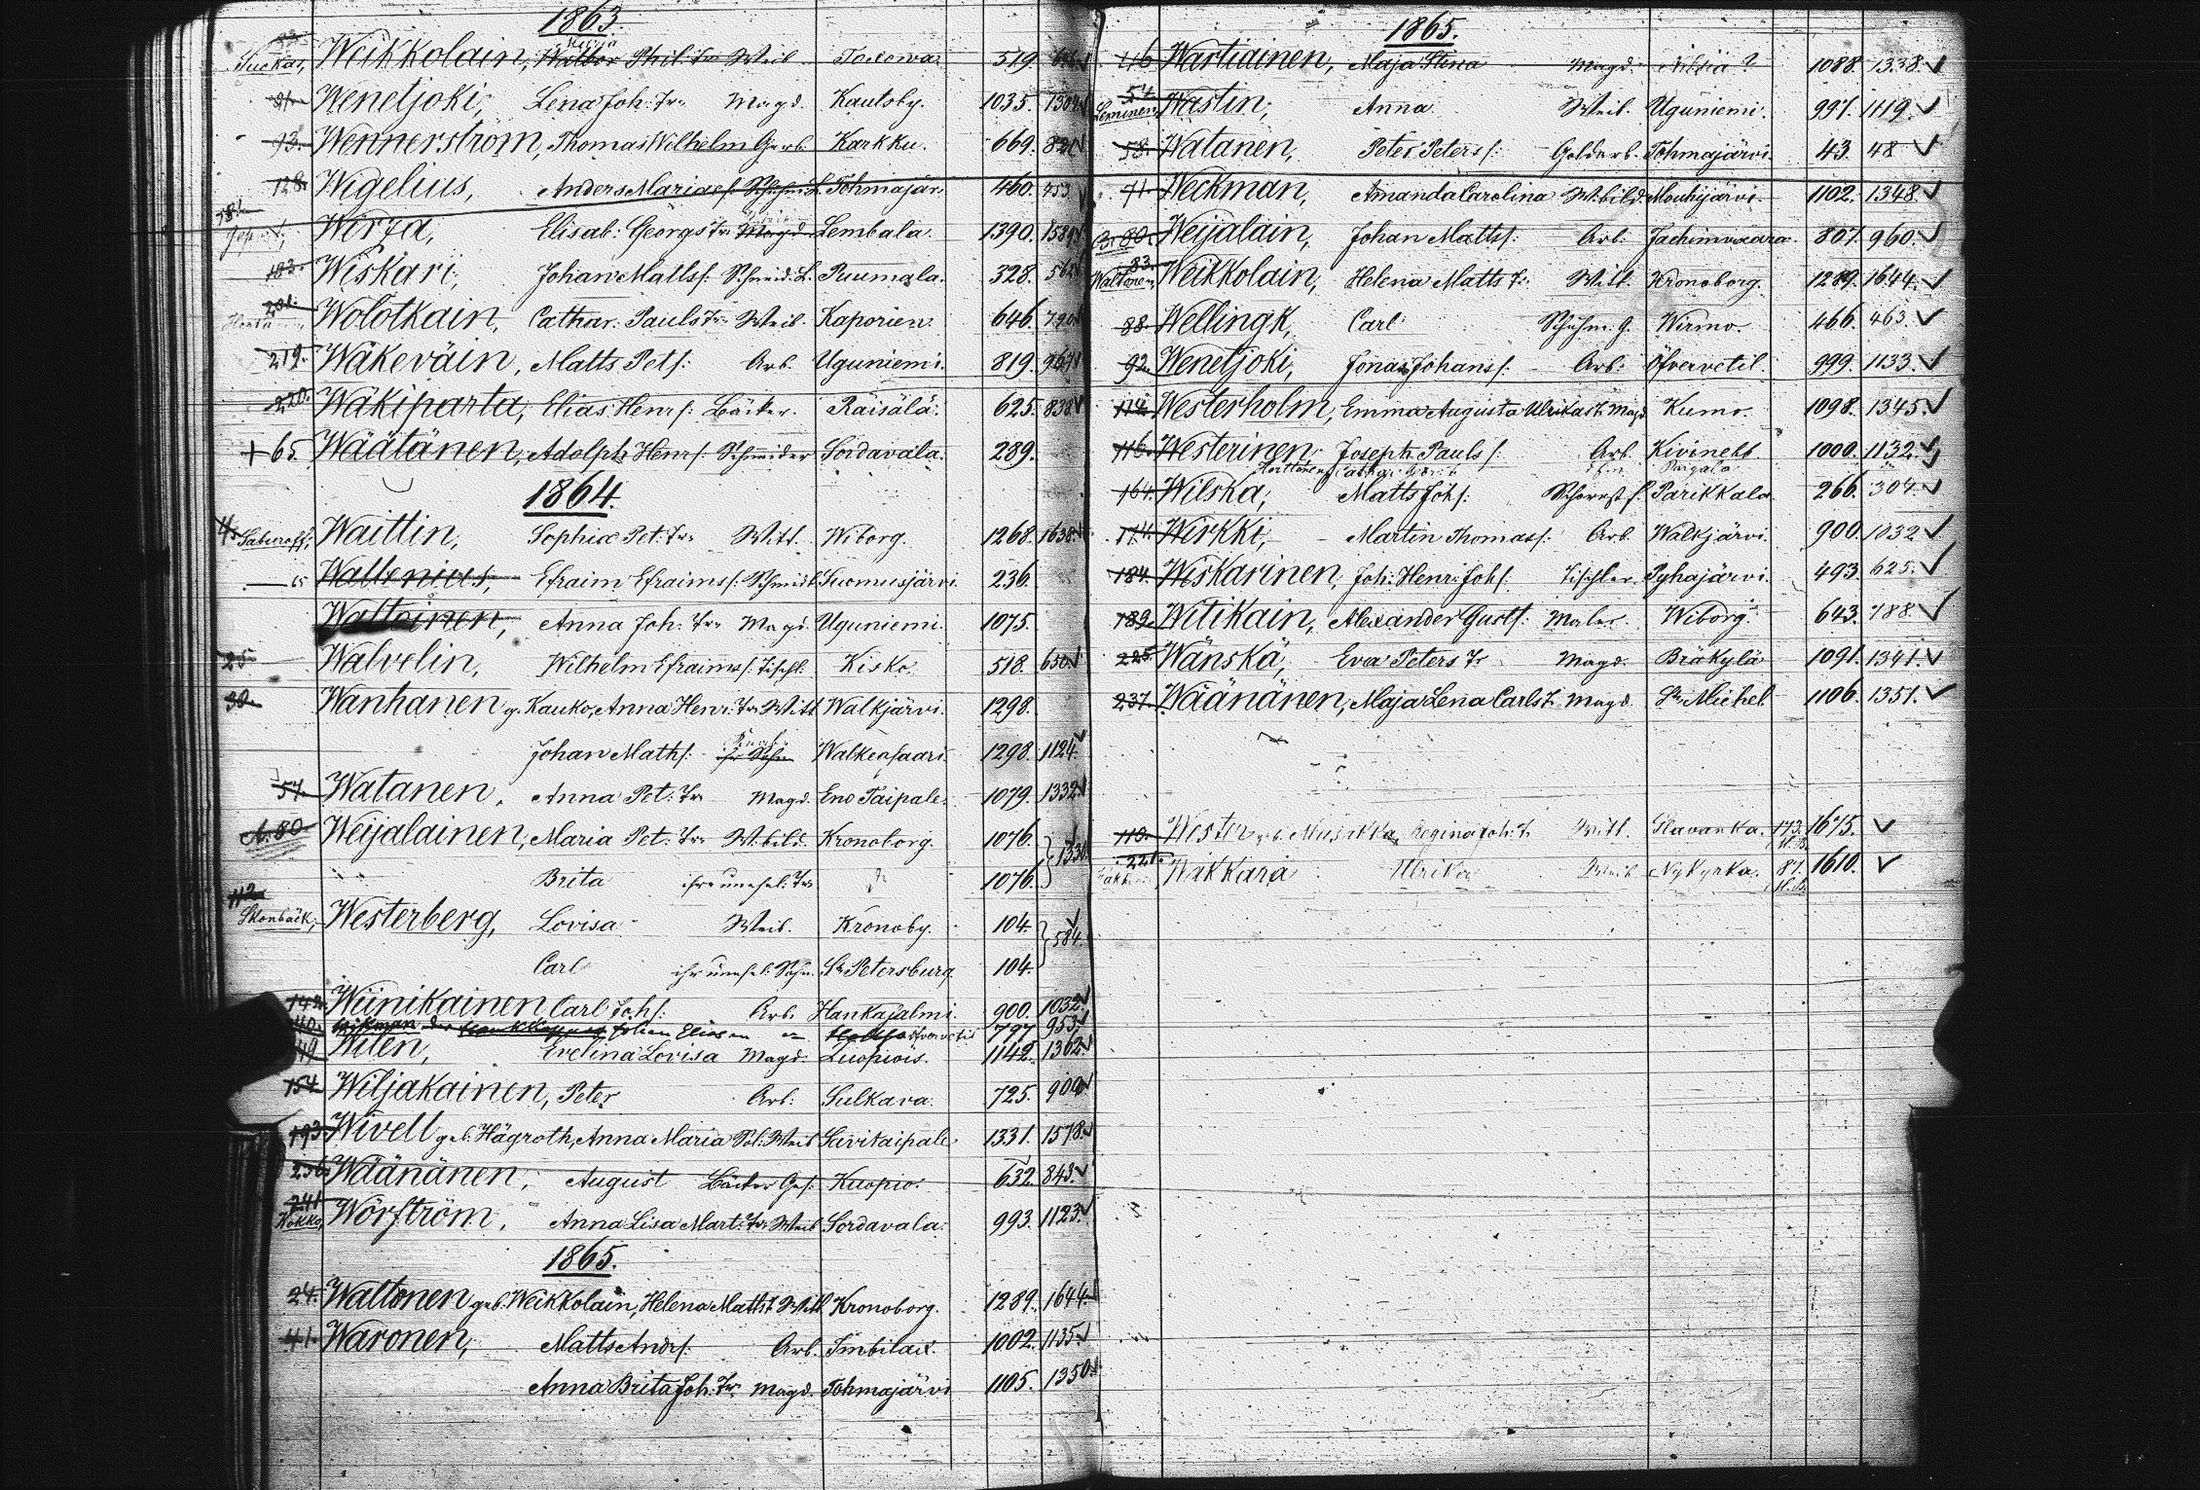 1863.
Weikkolain, Weib. 519.
91. Wenetjoki, Lena Joh: Tr. Magd. Kautsby. 1035. 1304
93. Wennerström, Thomas Wilhelm Gerb. Karkku. 669. 821
128. Wigelius, Anders Mariae f. Tohmajär. 460. 453
181. Wirza, Elisab: Georgs Tr. Magd. Lembala. 1390. 1589
183. Wiskari, Johan Matts f. Schneid. L. Puumala. 328. 562
201. Wolotkain, Cathar. Pauls Tr. Weib. Kaporien. 646. 790
219. Wäkeväin, Matts Pet f. Arb. Uguniemi. 819. 967
220. Wäkiparta, Elias Henr f. Bäcker. Räisälä. 625. 838
+ 65. Wäätänen, Adolph Henr f. Schneider Sordavala. 289.
1864.
4. Saburoff, Waittin, Sophia Pet: Tr. Witt. Wiborg. 1268. 1638
Wallenius, Efraim Efraims f. Schmidt Suomusjärvi. 236.
Waltainen, Anna Joh: Tr. Magd. Uguniemi. 1075.
25. Walvelin, Wilhelm Efraims f. Tischl. Kisko. 518. 650
30. Wanhanen g. Kauko, Anna Henr: Tr. Witt Walkjärvi. 1298.
Johan Math f. ihr Sohn Walkeasaari. 1298. 1124.
57. Watanen, Anna Pet: Tr. Magd. Eno Taipale. 1079. 1332
A. 80. Weijalainen, Maria Pet: Tr. W.bild. Kronoborg. 1076.
Brita ihre unehel: Tr. 1076. 1331.
112. Skonbäck, Westerberg, Lovisa Weib. Kronoby. 104.
Carl ihr unehel: Sohn. St. Petersburg 104. 584.
142. Wiinikainen Carl Joh f. Arb. Hankasalmi. 900. 1032
Wikman Johan Elias 797 953
149. Wilen, Evelina Lovisa Magd. Luopiois. 1142. 1362
154. Wiljakainen, Peter Arb: Sulkava. 725. 900
193. Wivell geb. Hägroth, Anna Maria Sol: Weib Savitaipale. 1331. 1578
236. Wäänänen, August Bäcker Ges: Kuopio. 632. 843
241. Kokko, Wörström, Anna Lisa Mart: Tr. Weib Sordavala. 993. 1123
1865.
24. Waltonen geb. Weikkolain, Helena Matts T. Witt Kronoborg. 1289. 1644
41. Waronen, Matts Andr f. Arb. Imbilax. 1002. 1135
Anna Brita Joh: Tr. Magd. Tohmajärvi 1105. 1350
1865.
46 Wartiainen, Maja Stina Magd. Nilsiä? 1088. 1338.
54. Leminen, Wastin, Anna Weib. Uguniemi. 997. 1119.
58. Watanen, Peter Peters f. Goldarb. Tohmajärvi. 43. 48
71. Weckman, Amanda Carolina W.bild. Mouhijärvi. 1102. 1348.
B. 80. Weijalain, Johan Matts f. Arb: Jachimvaara. 807. 960.
83. Waltonen, Weikkolain, Helena Matts T. Witt. Kronoborg. 1289. 1644.
88. Wellingk, Carl Schuhm. G. Wirmo. 466. 463.
92. Wenetjoki, Jonas Johans f. Arb: Öfvervetil. 999. 1133.
114. Westerholm, Emma Augusta Ulrika T. Magd. Kumo. 1098. 1345.
116. Westerinen, Joseph Pauls f. Arb. Kivineb 1000. 1132.
164. Wilska, Matts Joh f. Parikkala 266. 304.
174. Wirkki, Martin Thomas f. Arb. Walkjärvi. 900. 1032
184. Wiskarinen, Joh: Henr: Joh f. Tischler. Pyhäjärvi. 493. 625.
189. Witikain, Alexander Gust f. Maler. Wiborg. 643. 788.
225. Wänskä, Eva Peters Tr. Magd. Bräkylä 1091. 1341.
237. Wäänänen, Maja Lena Carls T. Magd. St. Michel 1106. 1351.
110. Wester geb. Musikka, Regina Joh: T. Witt. Slavanka. 173. 1675.
221. Wäkkärä Ulrika Weib Nykyrka. 87. 1610.